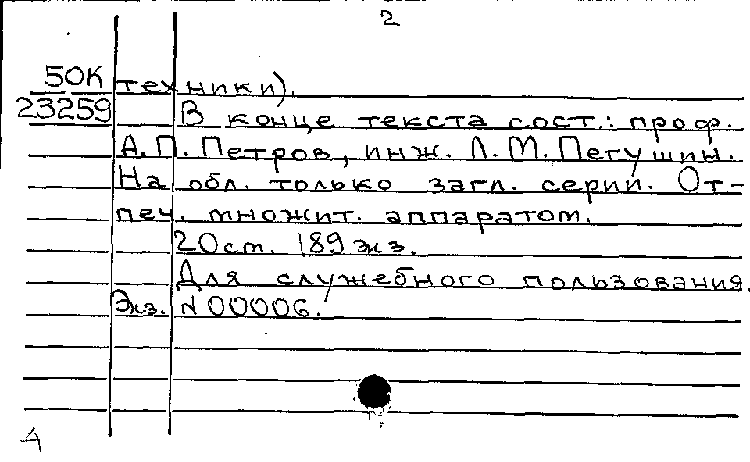 2
50К техники).
23259 В конце текста сост.: проф.
А.П. Петров, инж. Л.М. Петушин.
На обл. только загл. серии. От-
печ. множит. аппаратом.
20ст. 189 экз.
Для служебного пользования.
Экз. N 00006.